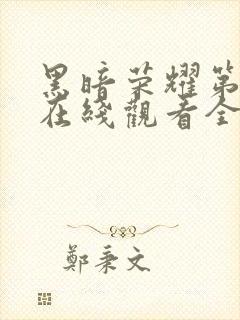 黑暗荣耀第
在綫觀看全
鄭秉文